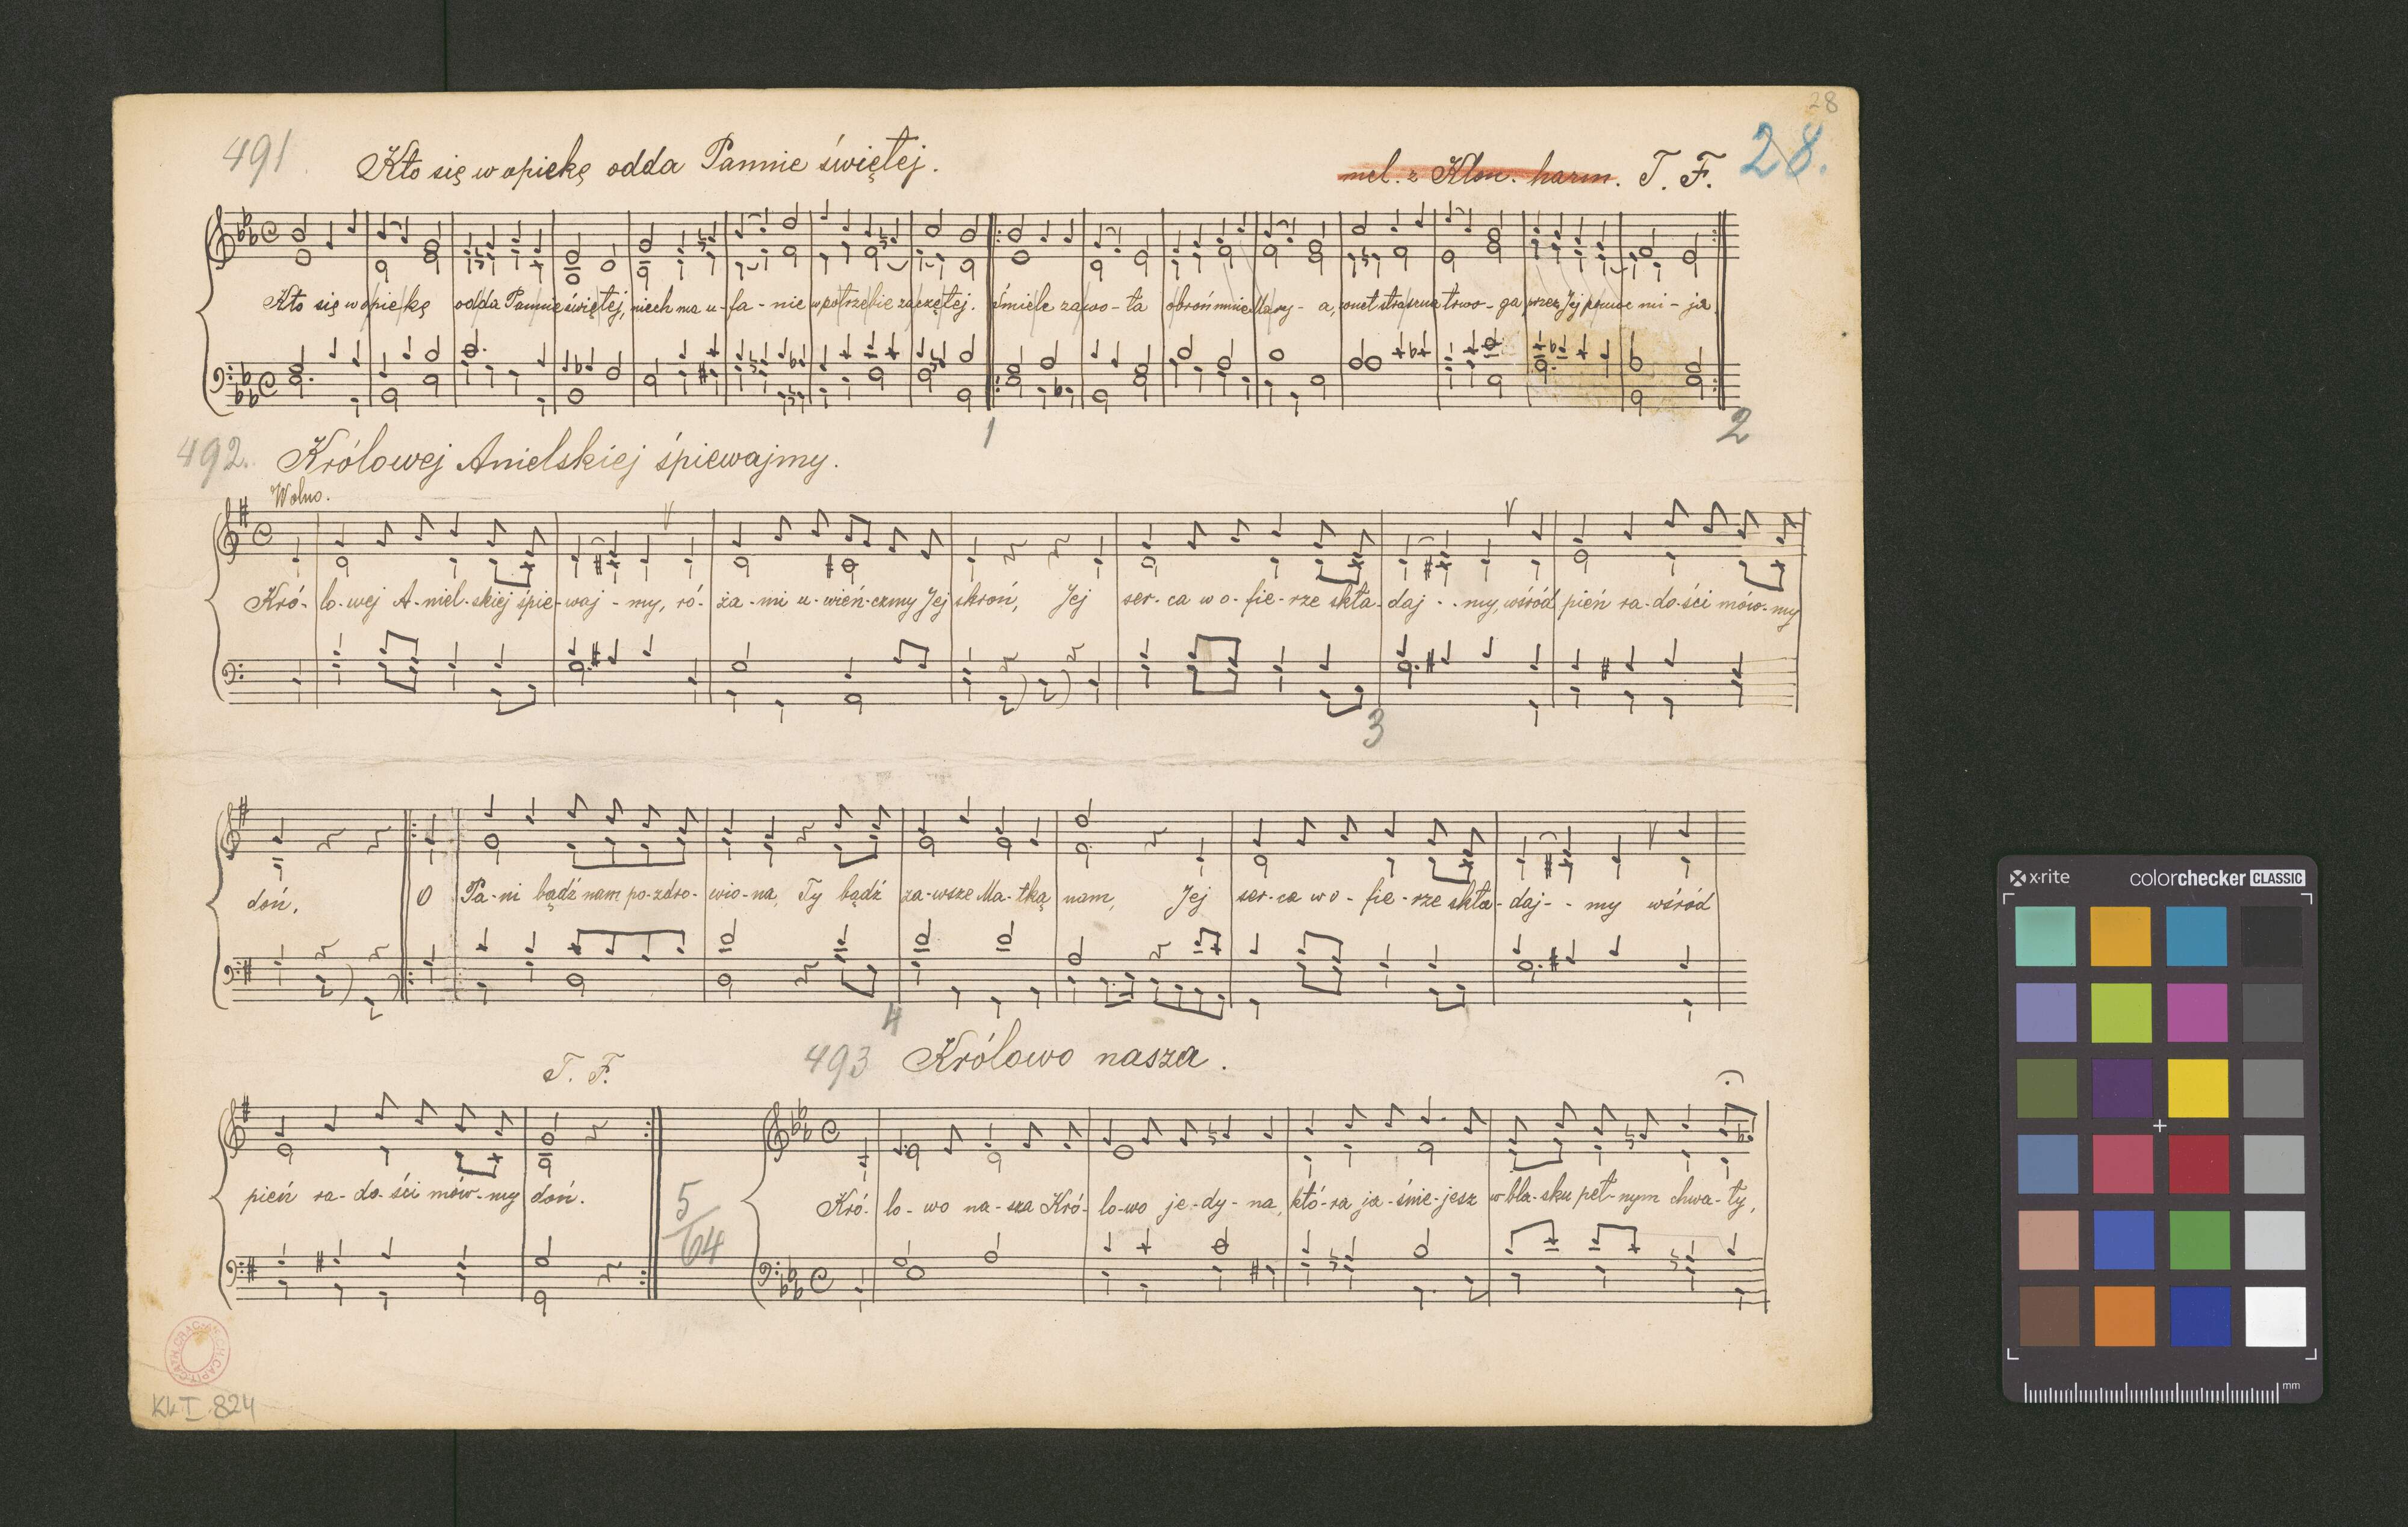 28
491 Kto się w opiekę odda Pannie świętej. mel. z Klon. harm. T. F. 28.
Kto się w opiekę odda Pannie świętej, niech ma u-fa-nie w potrzebie zaczętej. Śmiele zawo-ła obroń mnie Mary-a, wnet straszna trwo-ga przez Jej pomoc mi-ja
1 2
492. Królowej Anielskiej śpiewajmy.
Wolno.
Kró-lo-wej A-niel-skiej śpie-waj-my, ró-ża-mi u-wień-czmy Jej skroń, Jej ser-ca w o-fie-rze skła-daj--my, wśród pień ra-do-ści mów-my
3
doń. O Pa-ni bądź nam po-zdro-wio-na, Ty bądź za-wsze Ma-tką nam, Jej ser-ca w o-fie-rze skła-daj--my wśród
4
T. F. 493 Królowo nasza.
pień ra-do-ści mów-my doń. 5/64 Kró-lo-wo na-sza Kró-lo-wo je-dy-na, któ-ra ja-śnie-jesz w bla-sku peł-nym chwa-ły,
KKI 824
x-rite colorchecker CLASSIC
mm